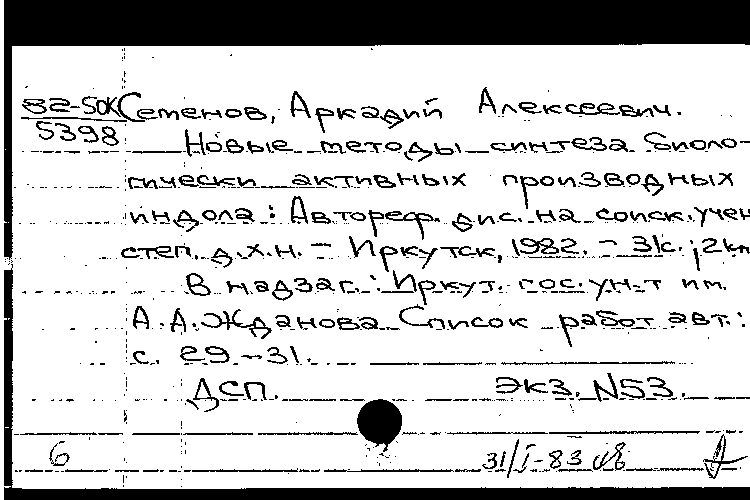 82-5ОК Семенов, Аркадий Алексеевич.
5398
Новые методы синтеза биоло-
гически активных производных
индола: Автореф. дис. на соиск. учен
степ. д.х.н. - Иркутск, 1982. - 31с.; 2
В надзаг.: Иркут. гос. ун-т им.
А.А. Жданова Список работ авт.:
с. 29-31.
ДСП. Экз. N53.
6 31/I-83